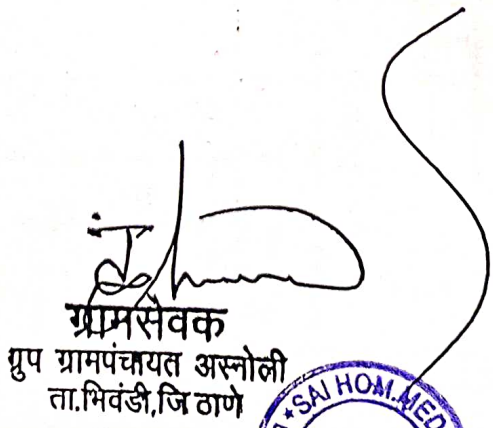 ग्रामसेवक
ग्रुप ग्रामपंचायत अस्नोली
ता.भिवंडी,जि ठाणे
★SAI HOM.MED